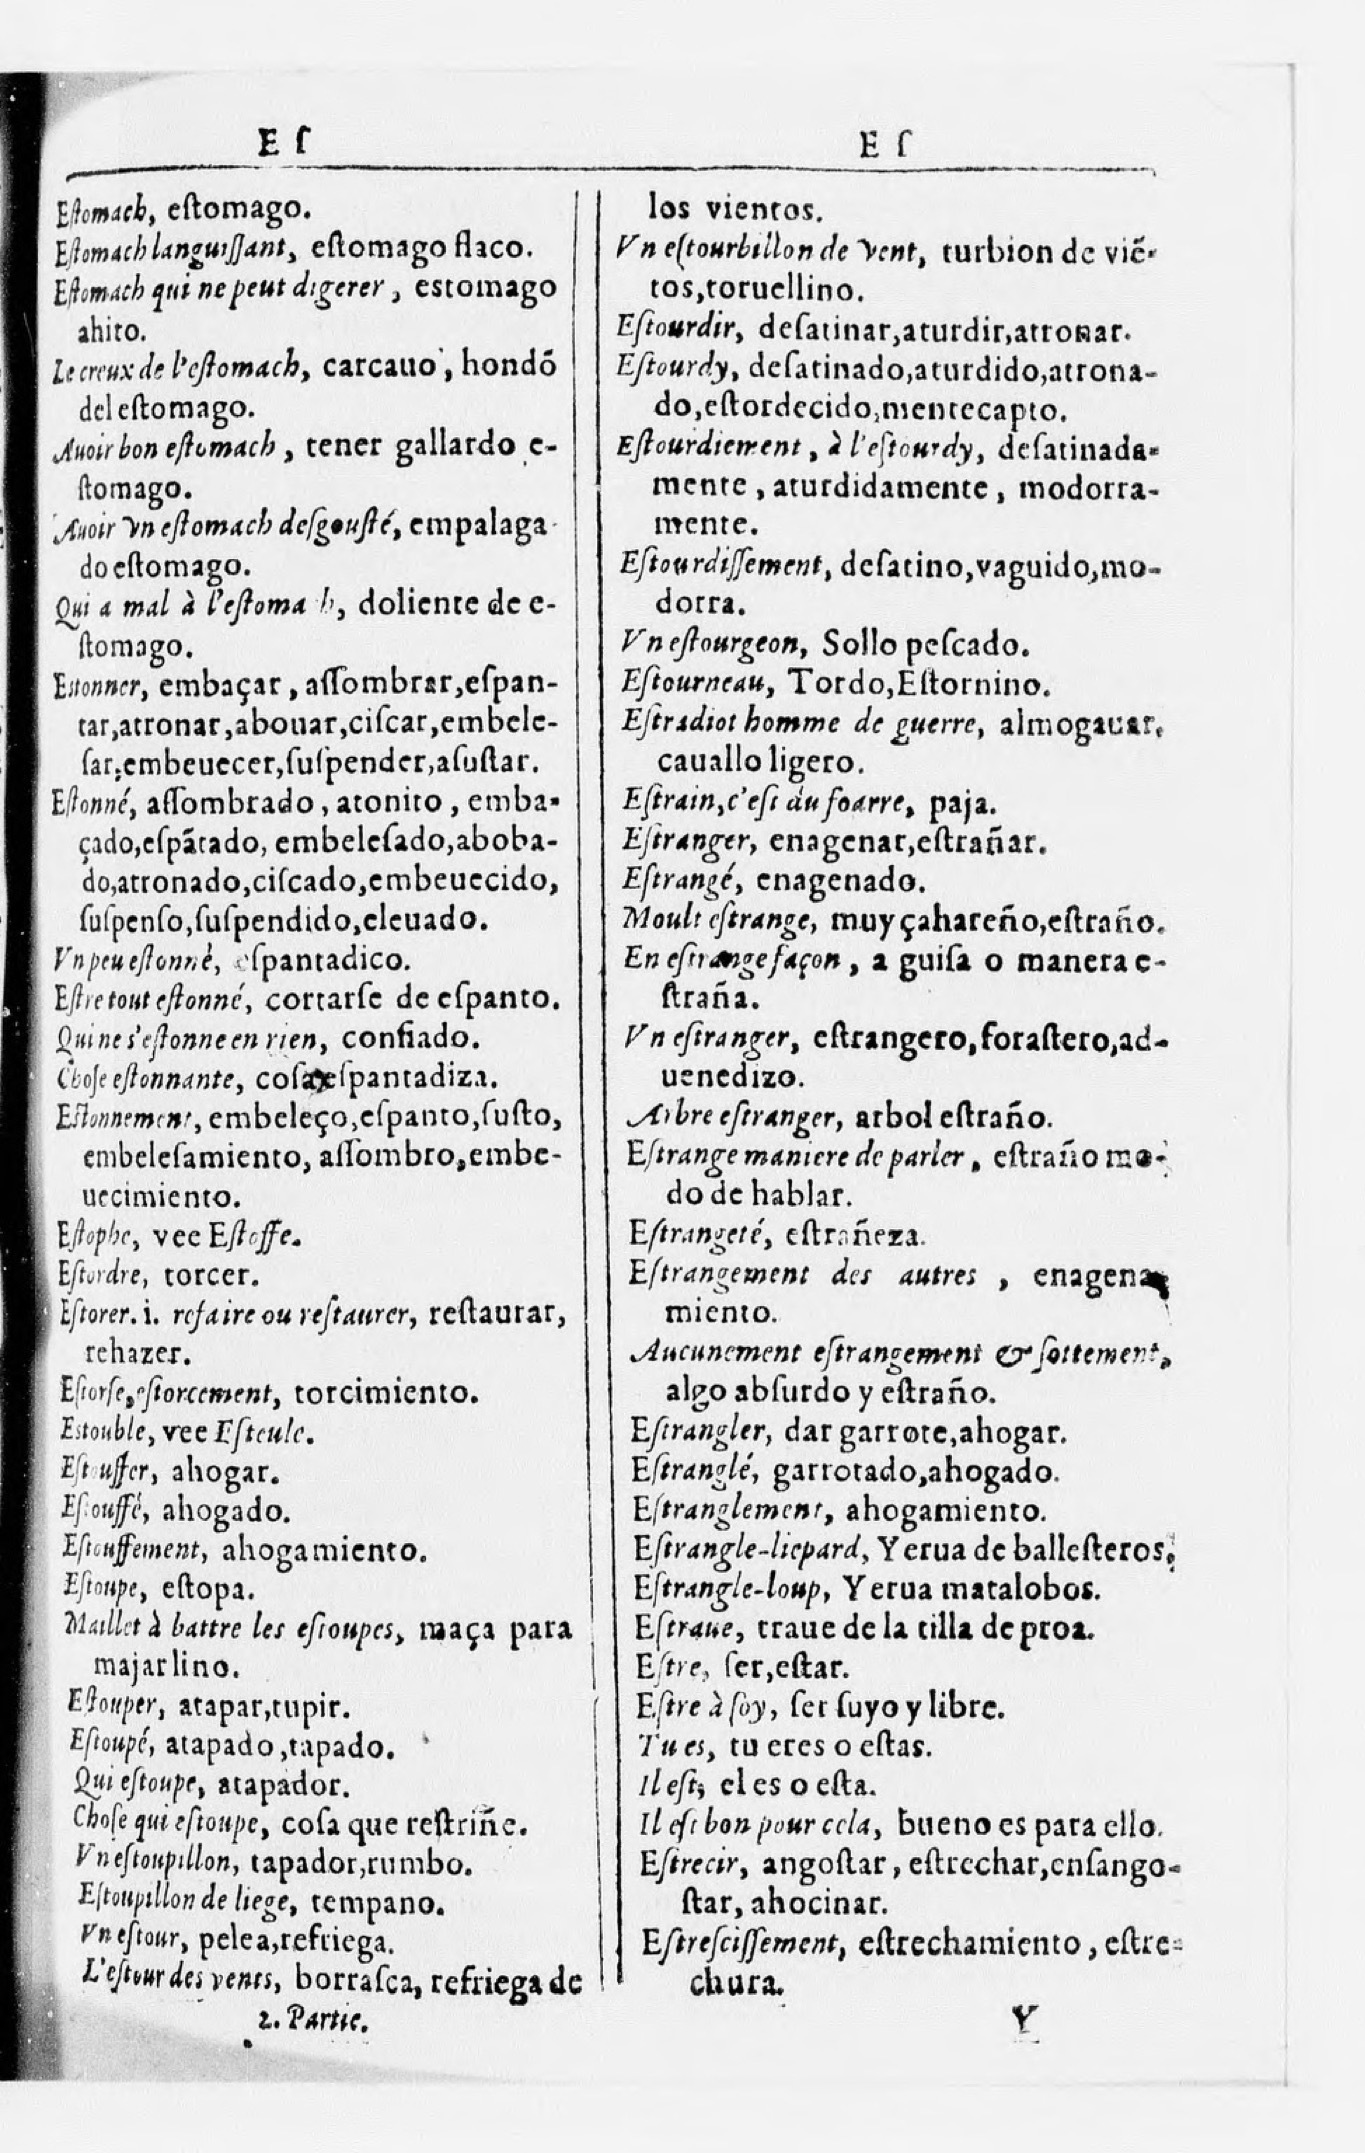 E ſ
Eſtomach, eſtomago.
Eſtomach languiſſant, eſtomago flaco.
Eſtomach qui ne peut digerer, estomago
ahito.
Le creux de l'eſtomach, carcauo, hondõ
del eſtomago.
Auoir bon eſtomach, tener gallardo e-
ſtomago.
Auoir vn eſtomach deſgouſté, empalaga-
do eſtomago.
Qui a mal à l'eſtoma h, doliente de e-
ſtomago.
Estonner, embaçar, aſſombrar, eſpan-
tar, atronar, abouar, ciſcar, embele-
ſar, embeuecer, ſuſpender, aſuſtar.
Eſtonné, aſſombrado, atonito, emba-
çado, eſpãtado, embeleſado, aboba-
do, atronado, ciſcado, embeuecido,
ſuſpenſo, ſuſpendido, eleuado.
Vn peu eſtonné, eſpantadico.
Eſtre tout eſtonné, cortarſe de eſpanto.
Qui ne s'eſtonne en rien, confiado.
Choſe eſtonnante, coſa eſpantadiza.
Eſtonnement, embeleço, eſpanto, ſuſto,
embeleſamiento, aſſombro, embe-
uecimiento.
Eſtophe, vee Eſtoffe.
Eſtordre, torcer.
Eſtorer. i. refaire ou reſtaurer, reſtaurar,
rehazer.
Eſtorſe, eſtorcement, torcimiento.
Estouble, vee Eſteule.
Eſtouffer, ahogar.
Eſtouffé, ahogado.
Eſtouffement, ahogamiento.
Eſtoupe, eſtopa.
Maillet à battre les eſtoupes, maça para
majar lino.
Eſtouper, atapar, tupir.
Eſtoupé, atapado, tapado.
Qui eſtoupe, atapador.
Choſe qui eſtoupe, coſa que reſtriñe.
Vn eſtoupillon, tapador, rumbo.
Eſtoupillon de liege, tempano.
Vn eſtour, pelea, refriega.
L'eſtour des vents, borraſca, refriega de
2. Partie.
E ſ
los vientos.
Vn eſtourbillon de vent, turbion de viẽ-
tos, toruellino.
Eſtourdir, deſatinar, aturdir, atronar.
Eſtourdy, deſatinado, aturdido, atrona-
do, eſtordecido, mentecapto.
Eſtourdiement, à l'eſtourdy, deſatinada-
mente, aturdidamente, modorra-
mente.
Eſtourdiſſement, deſatino, vaguido, mo-
dorra.
Vn eſtourgeon, Sollo peſcado.
Eſtourneau, Tordo, Eſtornino.
Eſtradiot homme de guerre, almogauar,
cauallo ligero.
Eſtrain, c'eſt du foarre, paja.
Eſtranger, enagenar, eſtrañar.
Eſtrangé, enagenado.
Moult eſtrange, muy çahareño, eſtraño.
En eſtrange façon, a guiſa o manera e-
ſtraña.
Vn eſtranger, eſtrangero, foraſtero, ad-
uenedizo.
Arbre eſtranger, arbol eſtraño.
Eſtrange maniere de parler, eſtraño mo-
do de hablar.
Eſtrangeté, eſtrañeza.
Eſtrangement des autres, enagena-
miento.
Aucunement eſtrangement & ſottement,
algo abſurdo y eſtraño.
Eſtrangler, dar garrote, ahogar.
Eſtranglé, garrotado, ahogado.
Eſtranglement, ahogamiento.
Eſtrangle-liepard, Yerua de balleſteros.
Eſtrangle-loup, Yerua matalobos.
Eſtraue, traue de la tilla de proa.
Eſtre, ſer, eſtar.
Eſtre à ſoy, ſer ſuyo y libre.
Tu es, tu eres o eſtas.
Il eſt, el es o eſta.
Il eſt bon pour cela, bueno es para ello.
Eſtrecir, angoſtar, eſtrechar, enſango-
ſtar, ahocinar.
Eſtreſciſſement, eſtrechamiento, eſtre-
chura.
Y